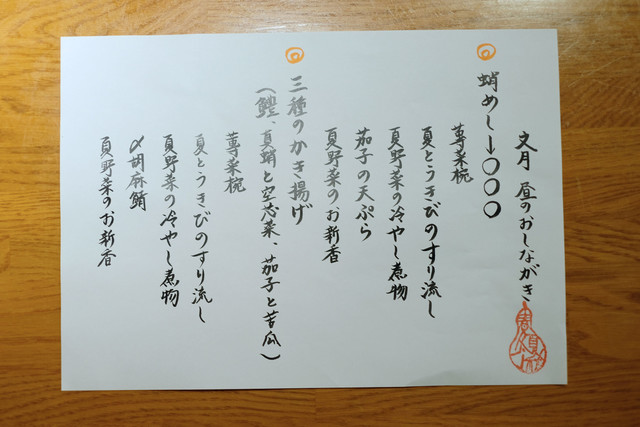 文月 昼のおしながき
蛸めし 一〇〇〇
蓴菜椀
夏とうきびのすり流し
夏野菜の冷やし煮物
茄子の天ぷら
夏野菜のお新香
三種のかき揚げ
（鱧、夏蛸と空芯菜、茄子と苦瓜）
蓴菜椀
夏とうきびのすり流し
夏野菜の冷やし煮物
〆胡麻鯖
夏野菜のお新香